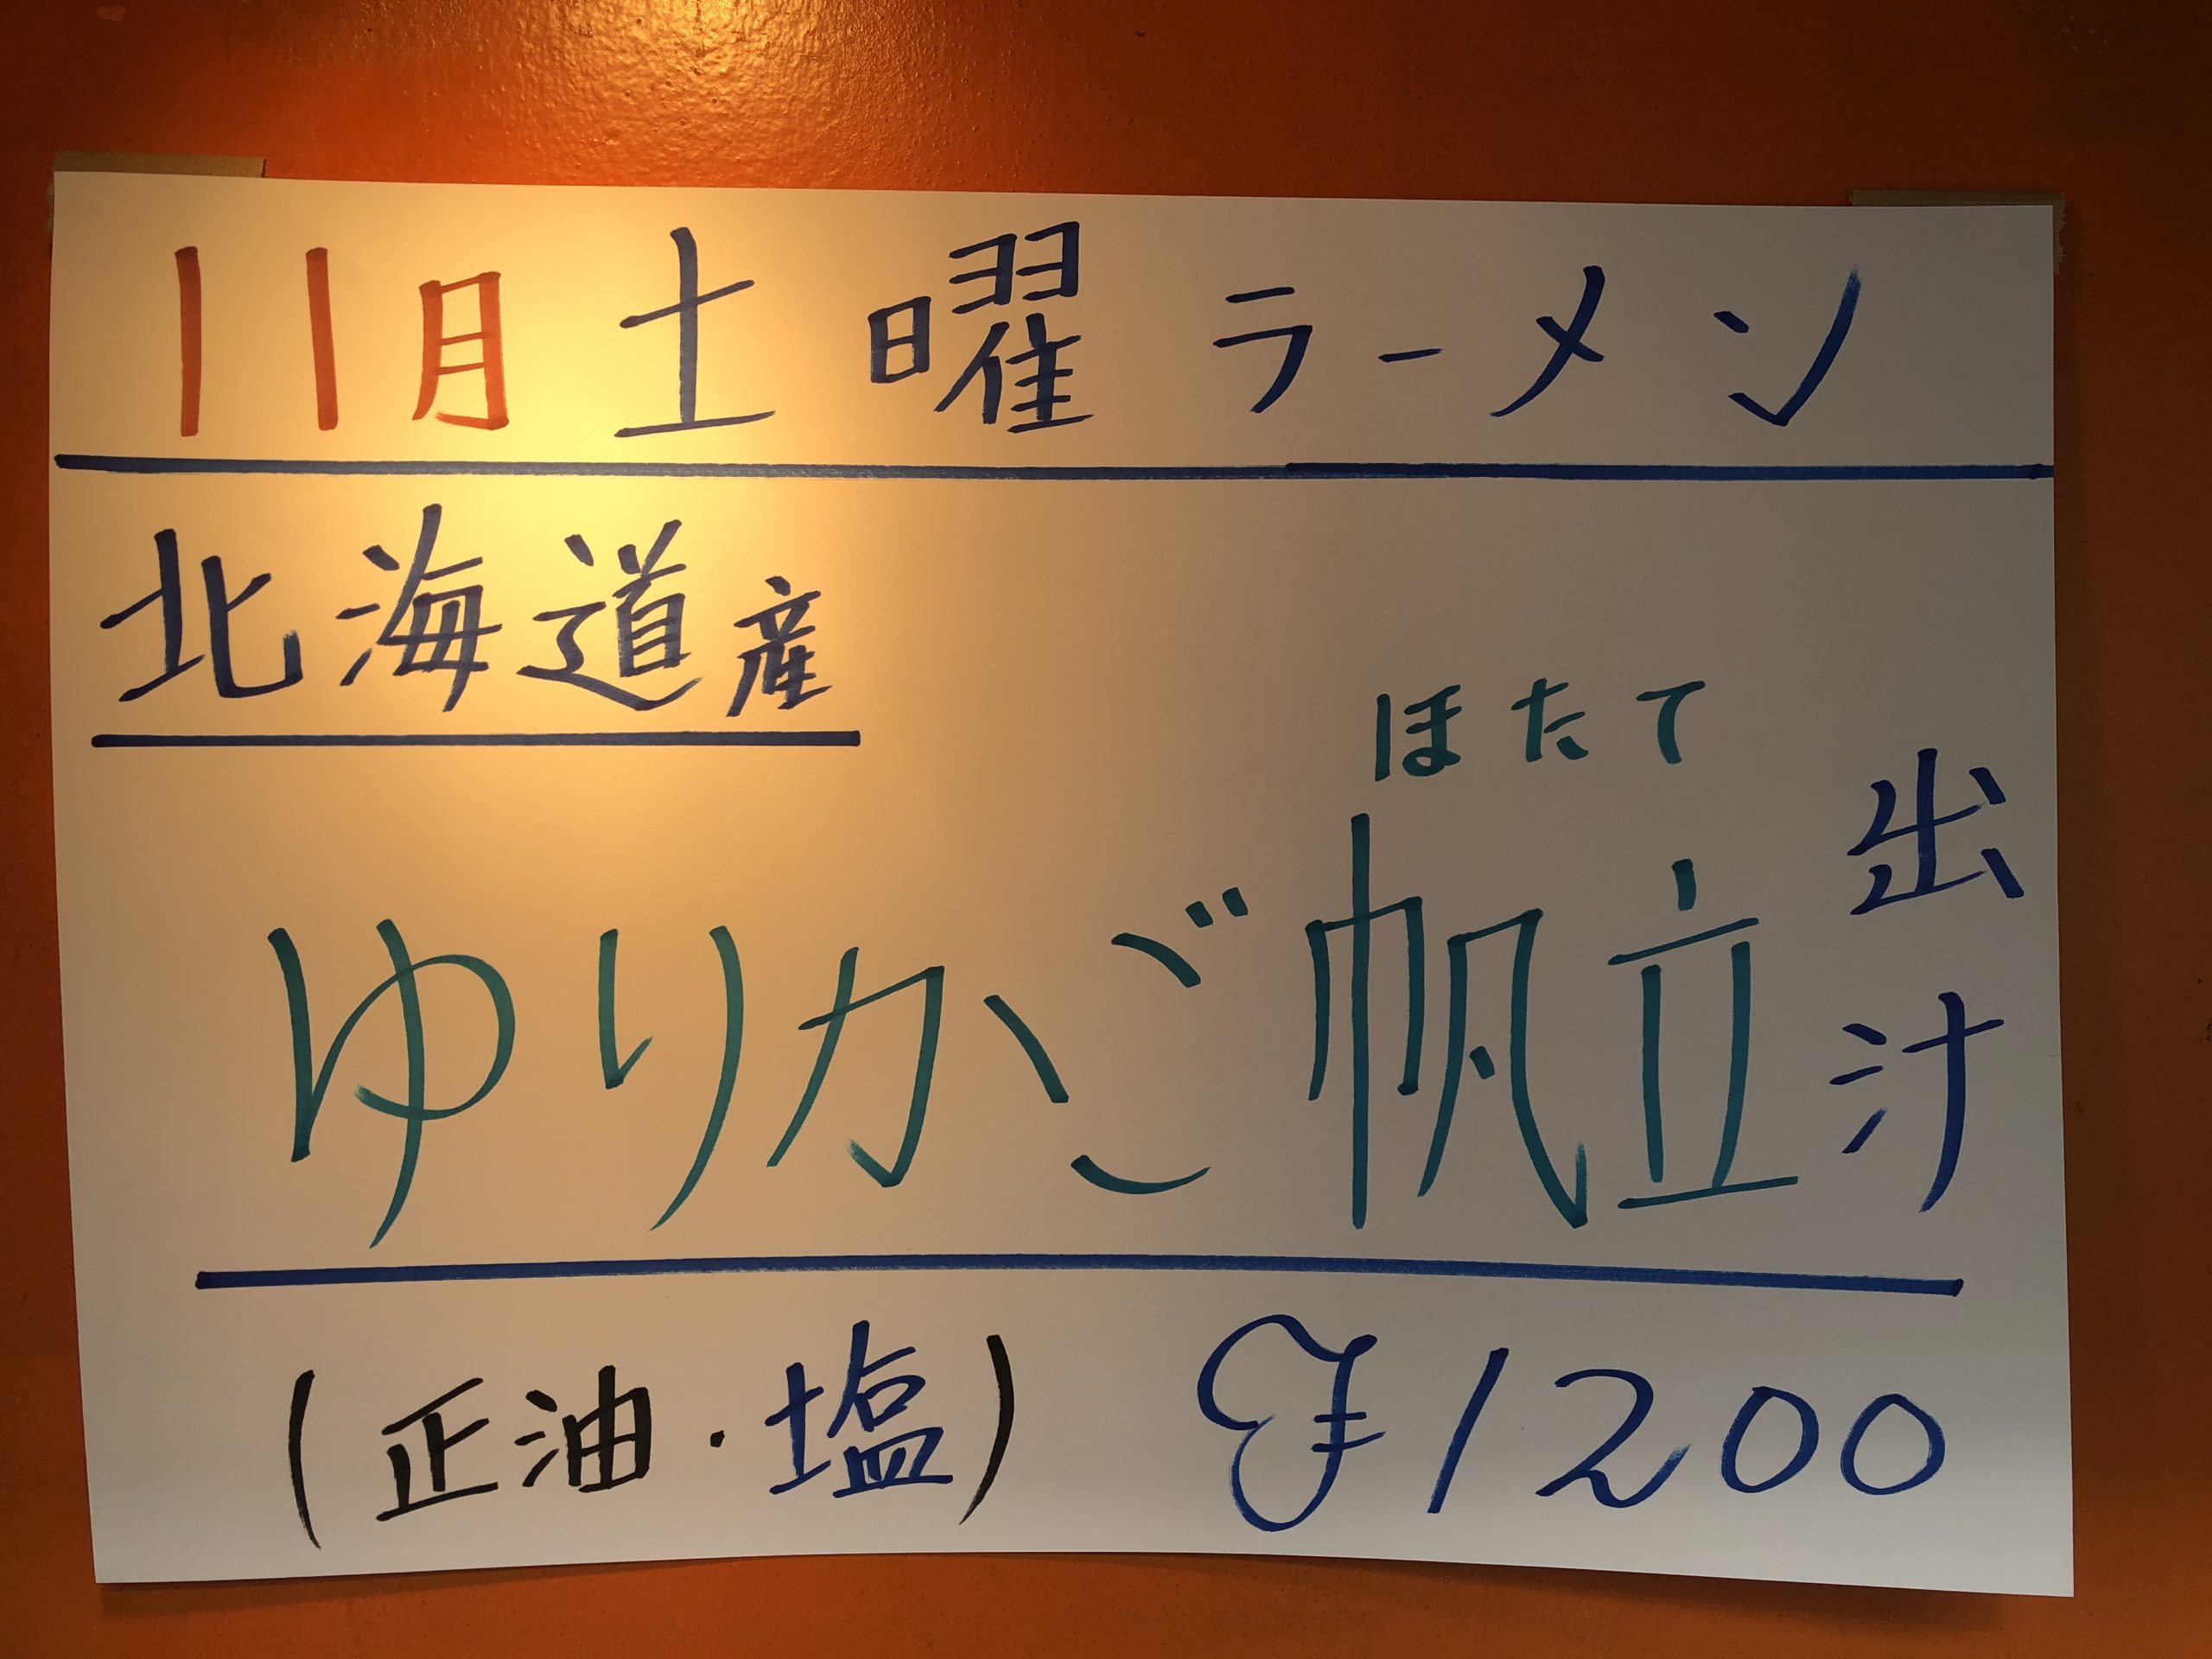 11月土曜ラーメン
北海道産
ほたて
ゆりかご帆立出汁
(正油・塩) ¥1200